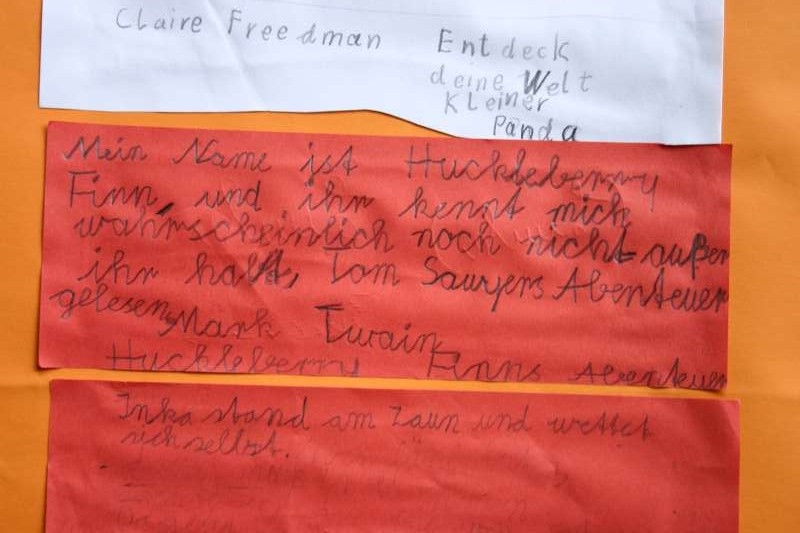 Claire Freedman
Entdeck
deine Welt
kleiner
Panda
Mein Name ist Huckleberry
Finn, und ihr kennt mich
wahrscheinlich noch nicht außer
ihr habt, Tom Sawyers Abenteuer
gelesen
Mark Twain
Huckleberry Finns Abenteuer
Inka stand am Zaun und wettet
sich selbst.